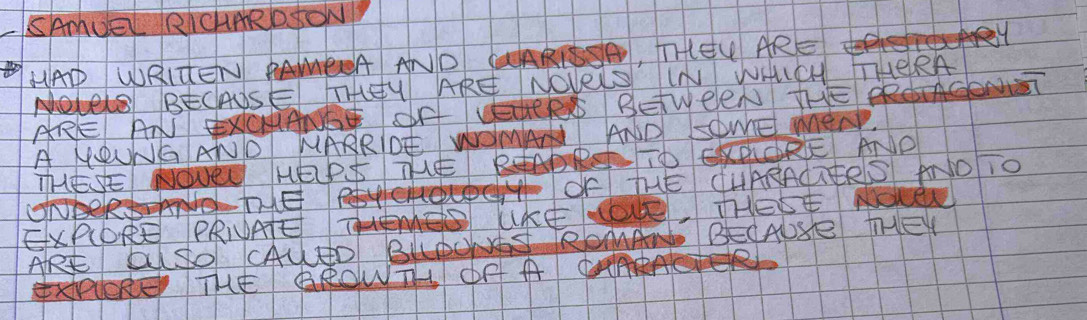 - SAMUEL RICHARDSON
HAD WRITTEN PAMELA AND CLARISSA, THEY ARE EPISTOLARY
NOVELS BECAUSE THEY ARE NOVELS IN WHICH THERA
ARE AN EXCHANGE OF LETTERS BETWEEN THE PROTAGONIST
A YOUNG AND MARRIDE WOMAN AND SOME MEN.
THESE NOVEL HELPS THE READRS TO EXPLORE AND
UNDERSTAND THE PSYCHOLOGY OF THE CHARACTERS AND TO
EXPLORE PRIVATE THEMES LIKE LOVE. THESE NOVEL
ARE ALSO CALLED BILDUNGS ROMAN BECAUSE THEY
EXPLORE THE GROWTH OF A CHARACTER